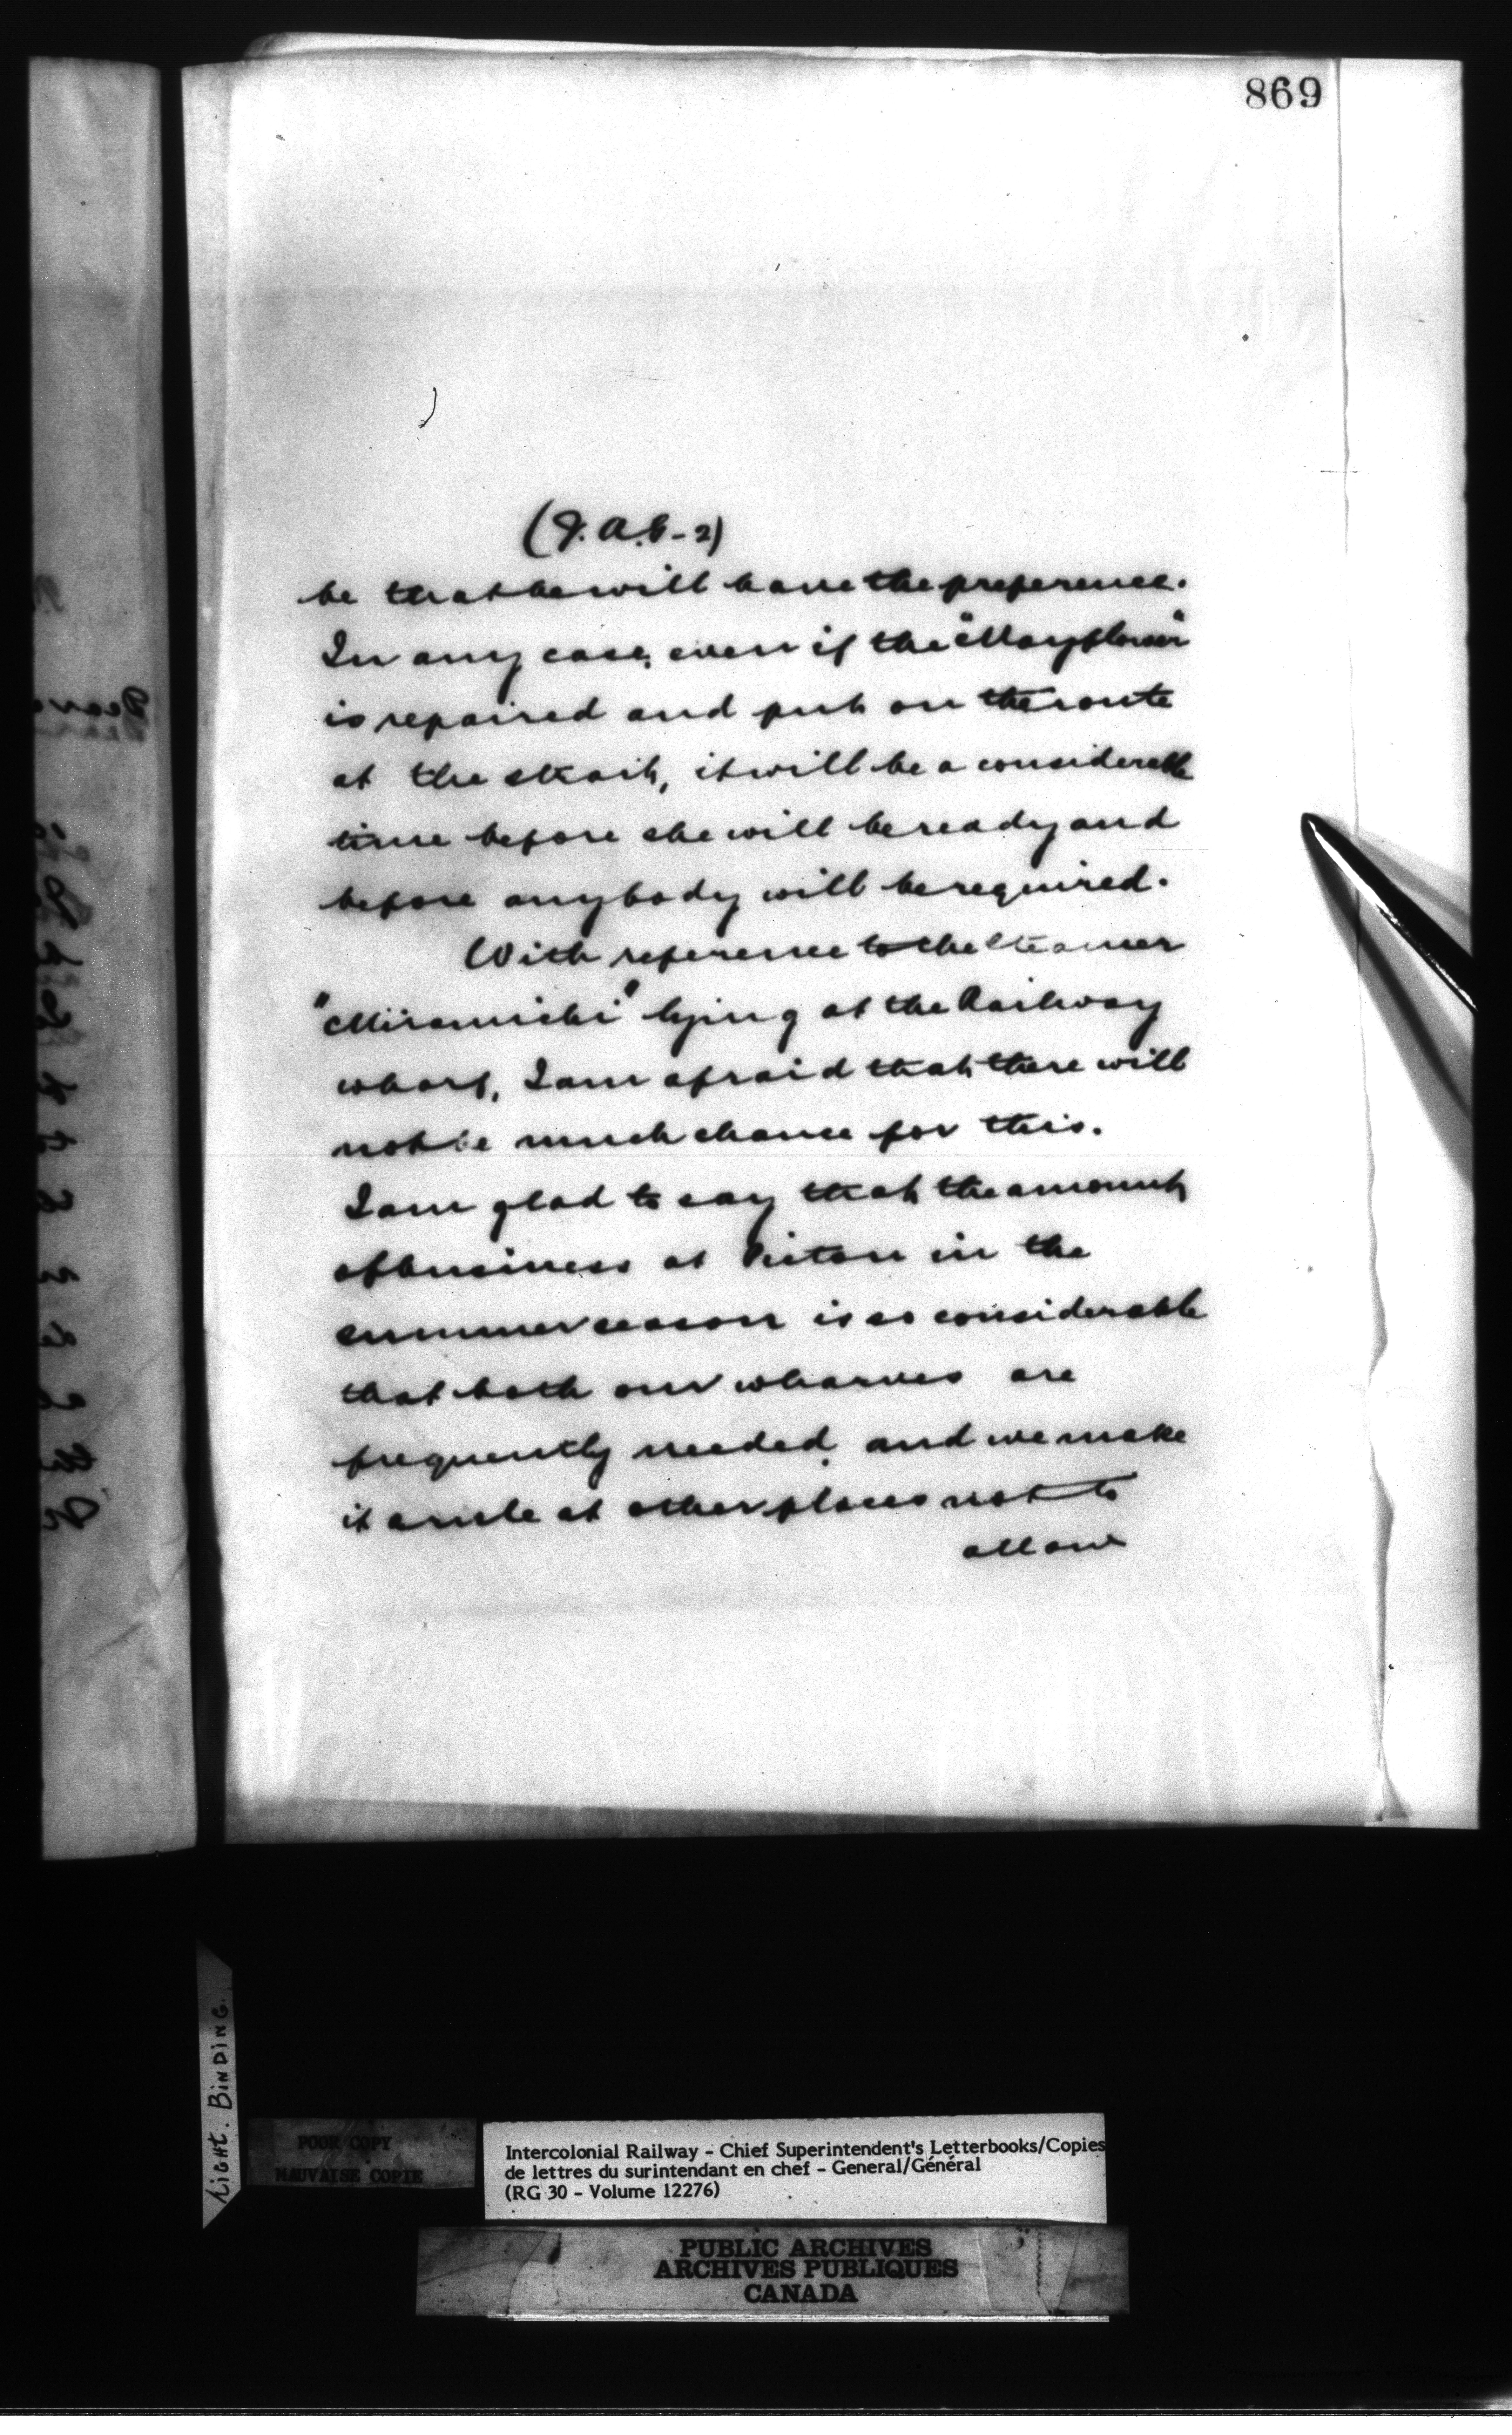 869
(J.A.G-2)
be that he will have the preference.
In any case, even if the "Mayflower"
is repaired and put on the route
at the strait, it will be a considerable
time before she will be ready and
before anybody will be required.
With reference to the steamer
"Miramichi" lying at the Railway
wharf, I am afraid that there will
not be much chance for this.
I am glad to say that the amount
of business at Pictou in the
summer season is so considerable
that both our wharves are
frequently needed, and we make
it a rule at other places not to
allow
LIGHT. BINDING.
POOR COPY
MAUVAISE COPIE
Intercolonial Railway - Chief Superintendent's Letterbooks/Copies
de lettres du surintendant en chef - General/Général
(RG 30 - Volume 12276)
PUBLIC ARCHIVES
ARCHIVES PUBLIQUES
CANADA